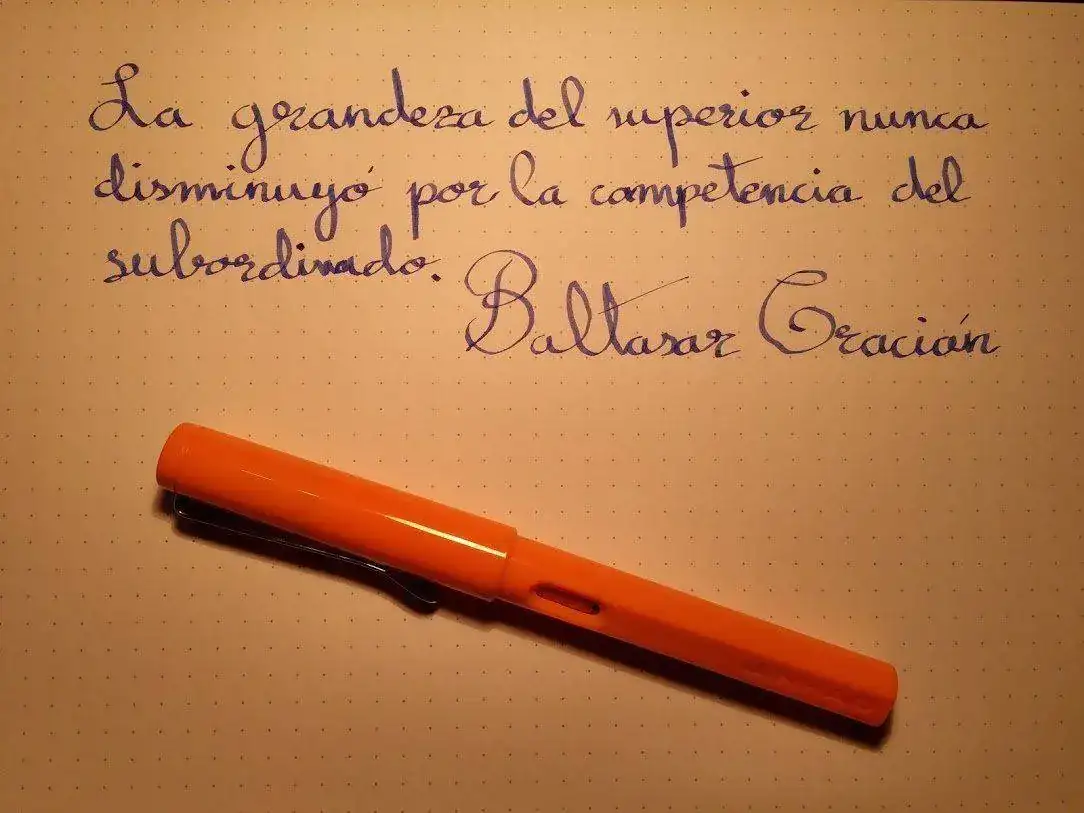 La grandeza del superior nunca
disminuyó por la competencia del
subordinado.
Baltasar Gracián